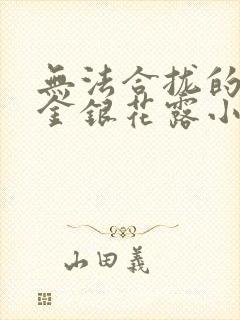 無法合拢的
金銀花露小
山田義